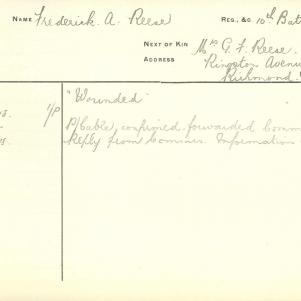 NAME Frederick. A. Reese REG., &C. 10th Bat
NEXT OF KIN Mrs G. F. Reese.
ADDRESS Kingston Avenue
Richmond.
"Wounded"
1/P P/Cable, confirmed forwarded Comm
Reply from Commr. Information